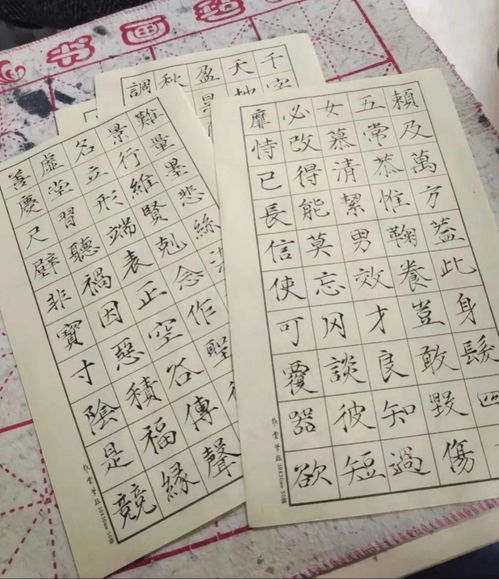 书画
千字
天地
盈
秋
調
賴及萬方蓋此身髮四
五常恭惟鞠養豈敢毀傷
女慕清絜男效才良知過
必改得能莫忘罔談彼短
靡恃已長信使可覆器欲
難量墨悲絲
景行維賢剋念作聖
名立形端表正空谷傳聲
虛堂習聽禍因惡積福緣
善慶尺璧非寶寸陰是競